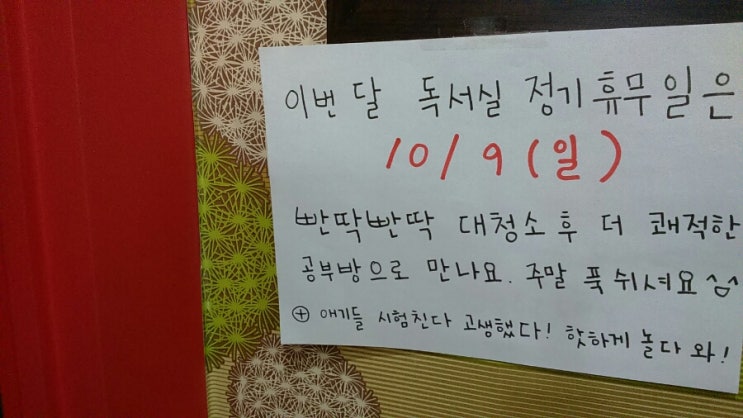 이번 달 독서실 정기휴무일은
10/9(일)
빤딱빤딱 대청소 후 더 쾌적한
공부방으로 만나요. 주말 푹 쉬셔요 ^^
⊕ 애기들 시험친다 고생했다! 핫하게 놀다 와!